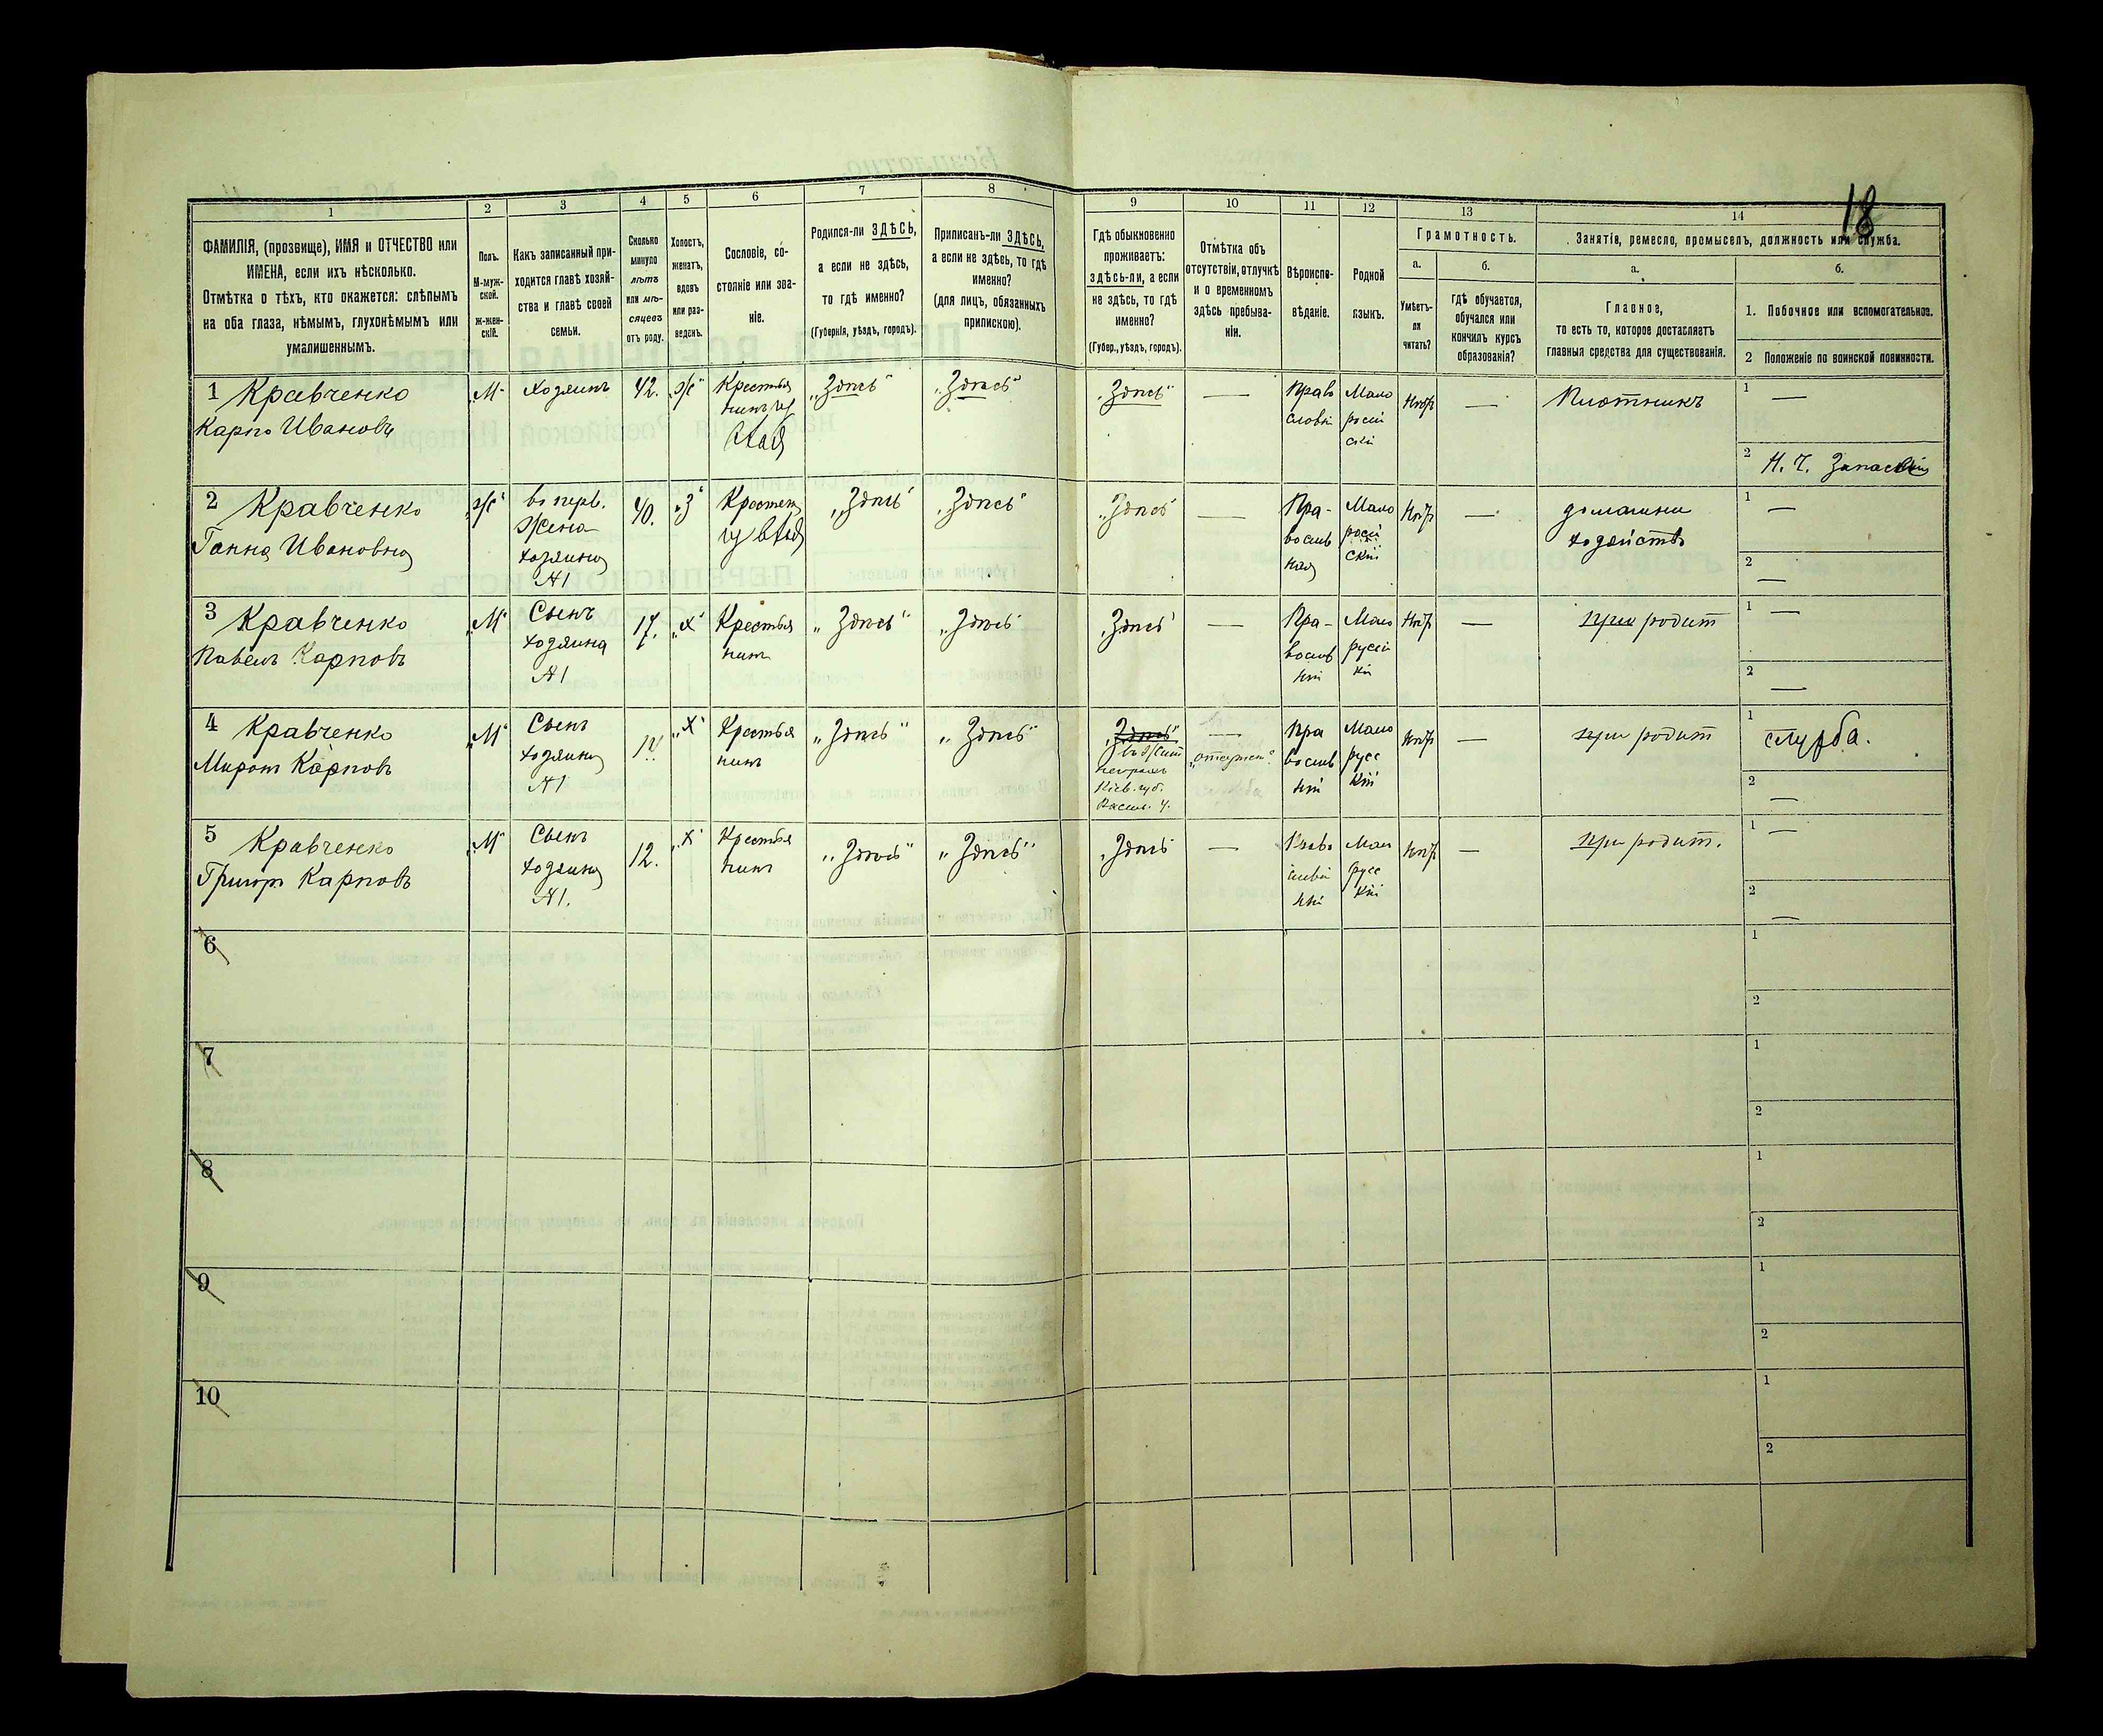 18
1
2
3
4
5
6
7
8
9
10
11
12
13
14
ФАМИЛІЯ, (прозвище), ИМЯ и ОТЧЕСТВО или
ИМЕНА, если ихъ нѣсколько.
Отмѣтка о тѣхъ, кто окажется: слѣпымъ
на оба глаза, нѣмымъ, глухонѣмымъ или
умалишеннымъ.
Полъ.
М-муж-
ской.
Ж-жен-
скій.
Какъ записанный при-
ходится главѣ хозяй-
ства и главѣ своей
семьи.
Сколько
минуло
лѣтъ
или мѣ-
сяцевъ
отъ роду.
Холостъ,
женатъ,
вдовъ
или раз-
веденъ.
Сословіе, со-
стояніе или зва-
ніе.
Родился-ли ЗДѢСЬ,
а если не здѣсь,
то гдѣ именно?
(Губернія, уѣздъ, городъ).
Приписанъ-ли ЗДѢСЬ,
а если не здѣсь, то гдѣ
именно?
(для лицъ, обязанныхъ
припискою).
Гдѣ обыкновенно
проживаетъ:
здѣсь-ли, а если
не здѣсь, то гдѣ
именно?
(Губер., уѣздъ, городъ).
Отмѣтка объ
отсутствіи, отлучкѣ
и о временномъ
здѣсь пребыва-
ніи.
Вѣроиспо-
вѣданіе.
Родной
языкъ.
Грамотность.
а.
Умѣетъ-
ли
читать?
б.
Гдѣ обучается,
обучался или
кончилъ курсъ
образованія?
Занятіе, ремесло, промыселъ, должность или служба.
а.
Главное,
то есть то, которое доставляетъ
главныя средства для существованія.
б.
1. Побочное или вспомогательное.
2 Положеніе по воинской повинности.
1 Кравченко
Карпо Ивановъ
„М"
Хозяинъ
42.
„Ж"
Крестья
нинъ
„Здѣсь"
„Здѣсь"
„Здѣсь"
—
Право
Мало
росій
скій
Нѣтъ
—
Плотникъ
1
—
2
Н. Ч.
2 Кравченко
Ганна Ивановна
„Ж"
Жена
хозяина
№1
40.
„З"
„Здѣсь"
„Здѣсь"
„Здѣсь"
—
Пра-
Мало
росій
скій
Нѣтъ
—
хозяйство
1
—
2
—
3 Кравченко
Павелъ Карповъ
„М"
Сынъ
хозяина
№1
17.
„Х"
Крестья
нинъ
„Здѣсь"
„Здѣсь"
„Здѣсь"
—
Пра-
Нѣтъ
—
при родит
1
—
2
—
4 Кравченко
Миронъ Карповъ
„М"
Сынъ
хозяина
№1
„Х"
Крестья
нинъ
„Здѣсь"
„Здѣсь"
„Здѣсь"
Кіев. губ.
—
Пра
Мало
рус
скій
Нѣтъ
—
при родит
1
служба.
2
—
5 Кравченко
Григоръ Карповъ
„М"
Сынъ
хозяина
№1.
12.
„Х"
Крестья
нинъ
„Здѣсь"
„Здѣсь"
„Здѣсь"
—
рус
скій
Нѣтъ
—
при родит.
1
—
2
—
6
1
2
7
1
2
8
1
2
9
1
2
10
1
2